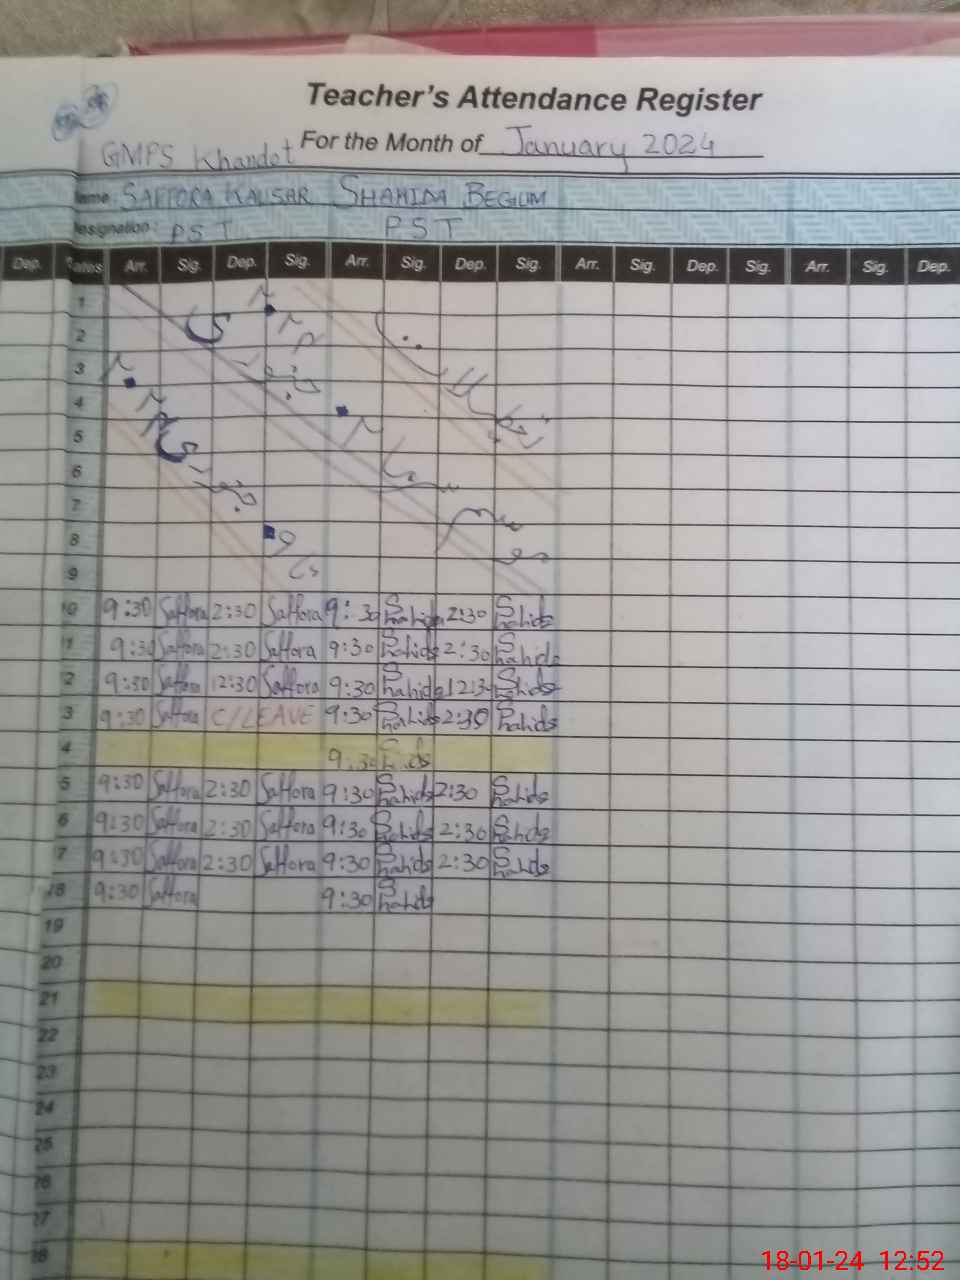 Teacher's Attendance Register
GMPS Khandot For the Month of January 2024
Name SAFFORA KAUSAR SHAHIDA BEGUM
Designation: PST PST
Dep. Dates Arr. Sig. Dep. Sig. Arr. Sig. Dep. Sig. Arr. Sig. Dep. Sig. Arr. Sig. Dep.
1
2
3
4
5
6
7
8
9
10 9:30 Saffora 2:30 Saffora 9:30 Shahida 2:30 Shahida
11 9:30 Saffora 2:30 Saffora 9:30 Shahida 2:30 Shahida
12 9:30 Saffora 12:30 Saffora 9:30 Shahida 12:30 Shahida
13 9:30 Saffora C/LEAVE 9:30 Shahida 2:30 Shahida
14 9:30
15 9:30 Saffora 2:30 Saffora 9:30 Shahida 2:30 Shahida
16 9:30 Saffora 2:30 Saffora 9:30 Shahida 2:30 Shahida
17 9:30 Saffora 2:30 Saffora 9:30 Shahida 2:30 Shahida
18 9:30 Saffora 9:30 Shahida
19
20
21
22
23
24
25
26
27
28
18-01-24 12:52